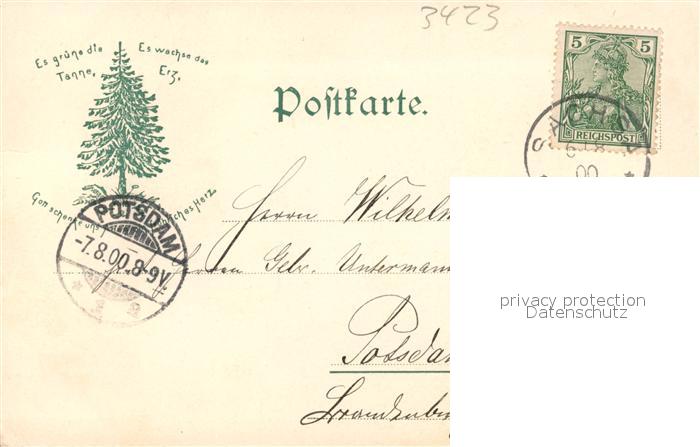 3423
Es grüne die Tanne,
Es wachse das Erz,
Gott schenke uns
5 5
REICHSPOST
Postkarte.
6 8
00
POTSDAM
-7.8.00.8-9V.
Herrn Wilhelm
Gebr. Untermann
Potsda
Brandenbu
privacy protection
Datenschutz